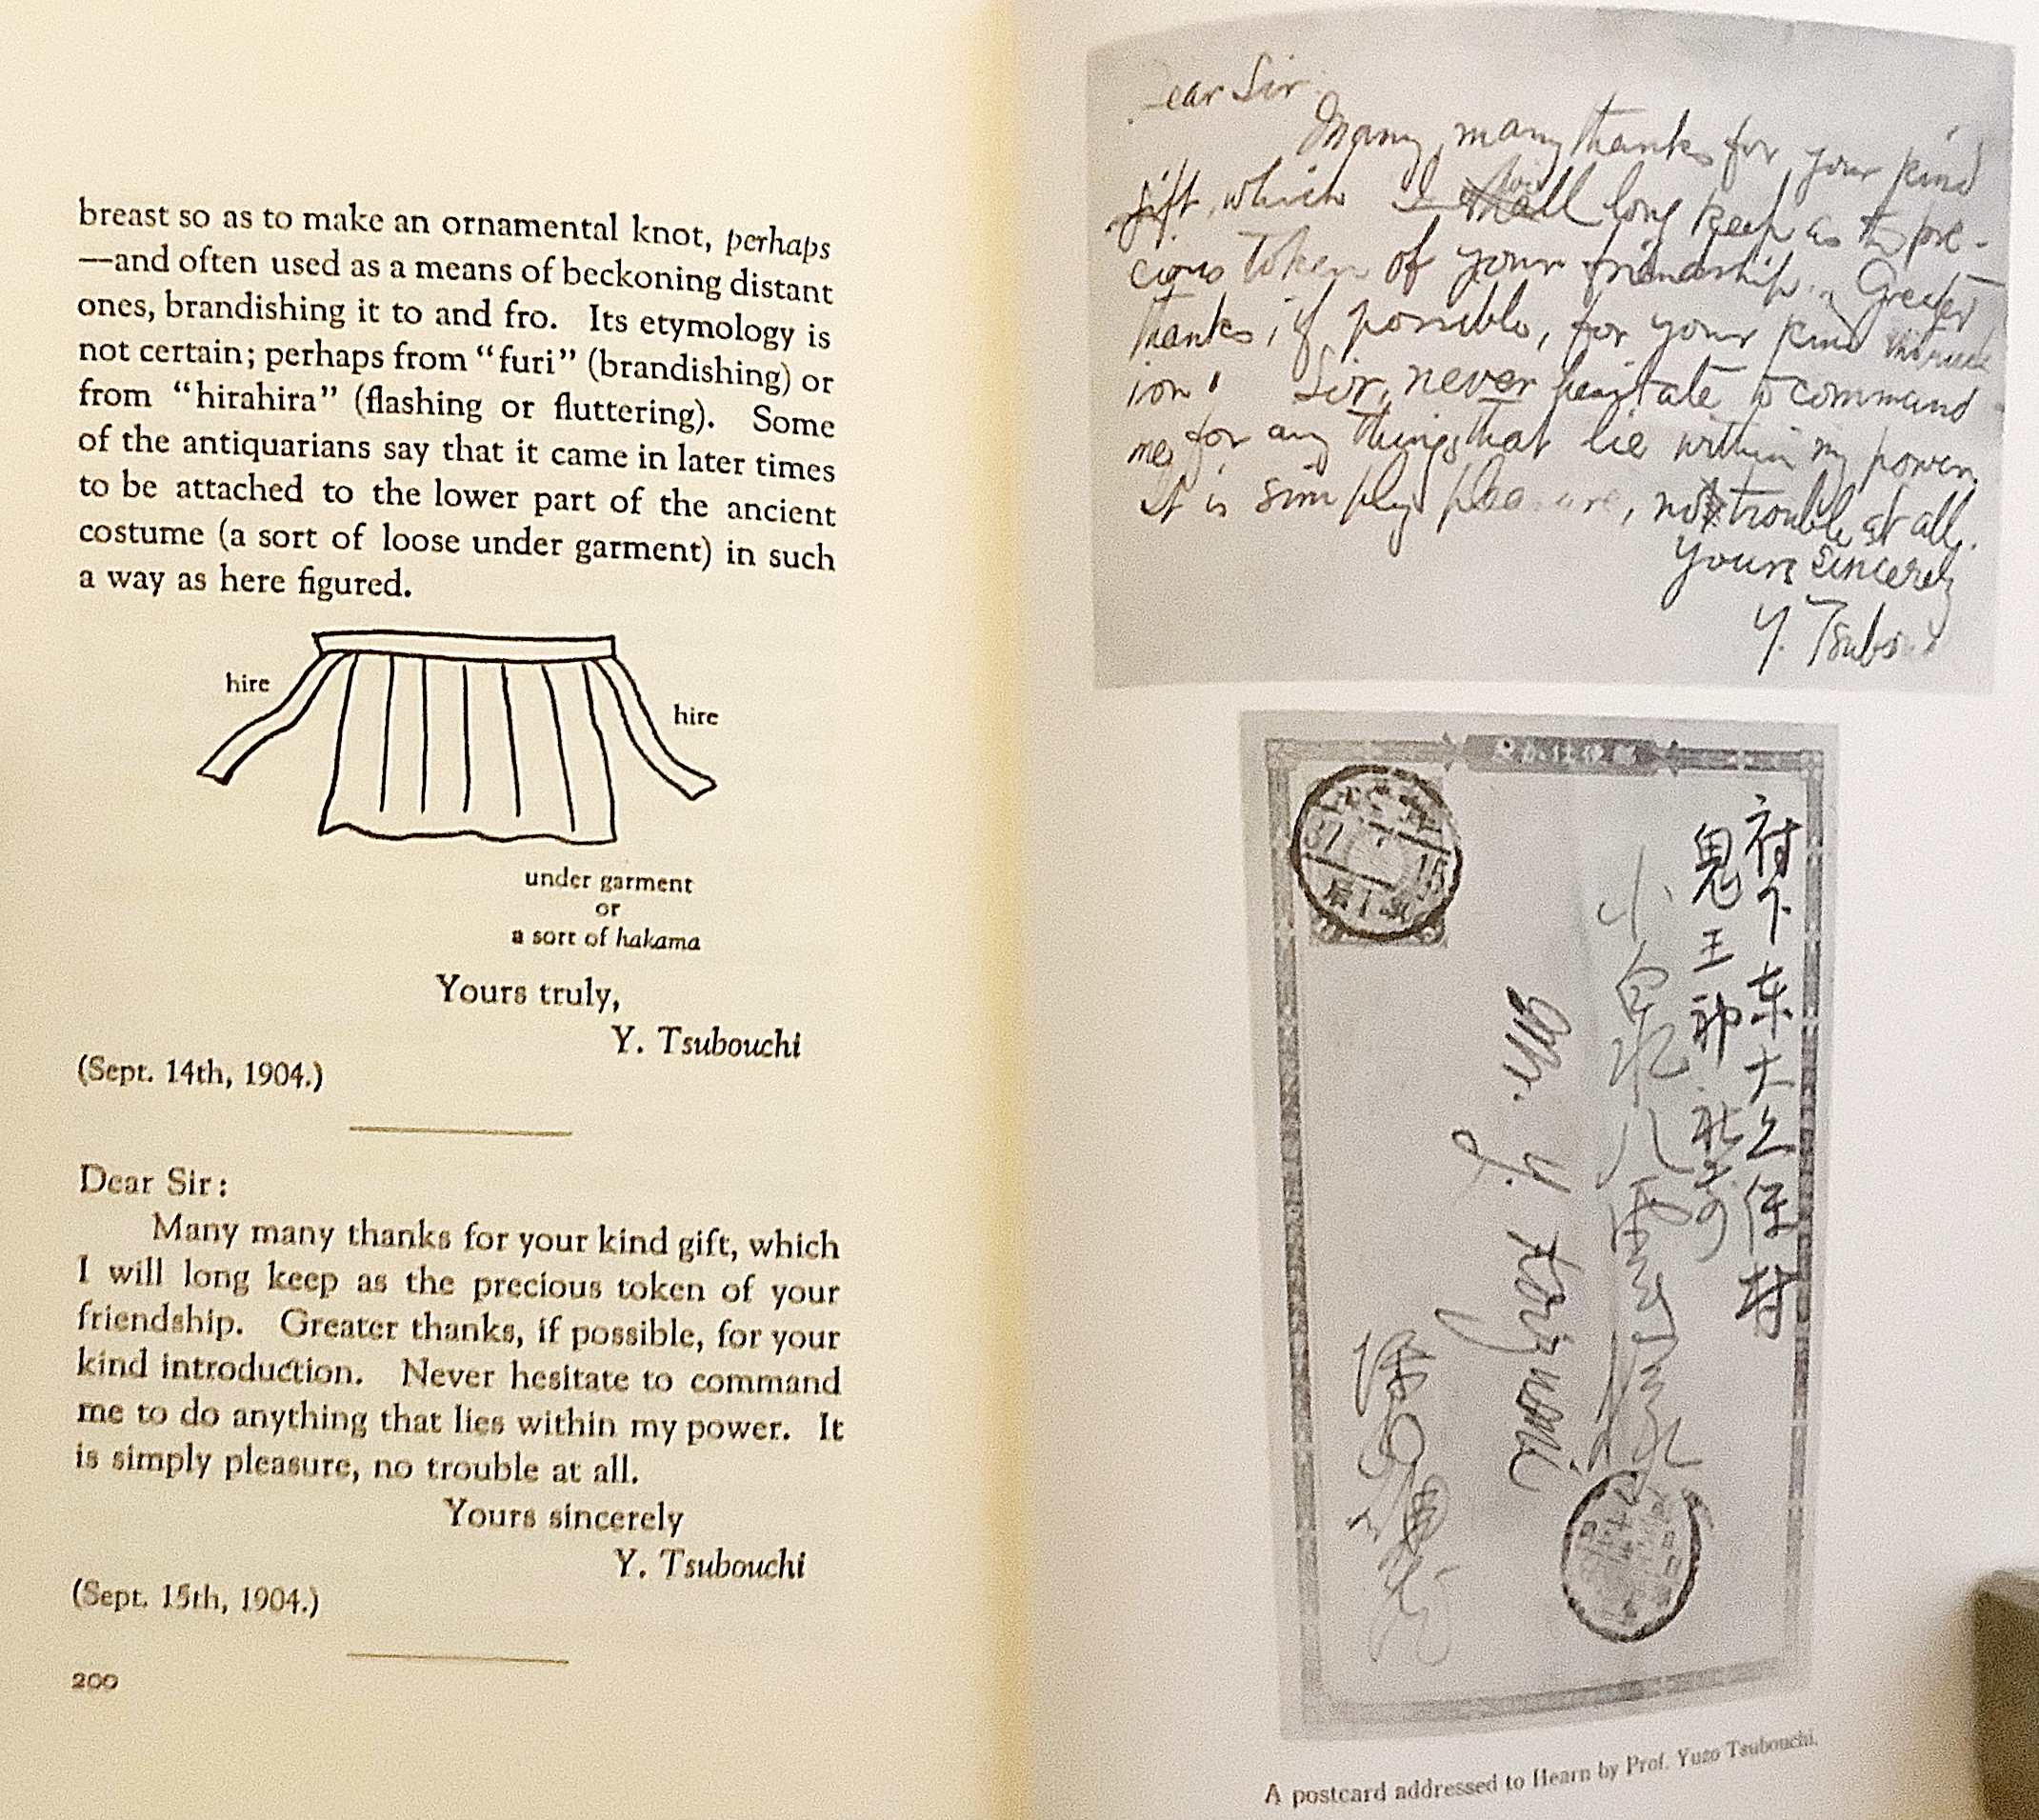 breast so as to make an ornamental knot, perhaps
—and often used as a means of beckoning distant
ones, brandishing it to and fro. Its etymology is
not certain; perhaps from “furi” (brandishing) or
from “hirahira” (flashing or fluttering). Some
of the antiquarians say that it came in later times
to be attached to the lower part of the ancient
costume (a sort of loose under garment) in such
a way as here figured.
hire
hire
under garment
or
a sort of hakama
Yours truly,
Y. Tsubouchi
(Sept. 14th, 1904.)
Dear Sir:
Many many thanks for your kind gift, which
I will long keep as the precious token of your
friendship. Greater thanks, if possible, for your
kind introduction. Never hesitate to command
me to do anything that lies within my power. It
is simply pleasure, no trouble at all.
Yours sincerely
Y. Tsubouchi
(Sept. 15th, 1904.)
200
Dear Sir
Many, many thanks for your kind
gift, which I will long keep as the pre-
cious token of your friendship. Greater
thanks, if possible, for your kind
ion! Sir, never hesitate to command
me for any things that lie within my power.
It is simply pleasure, no trouble at all.
Yours Sincerely
Y. Tsubou
府下東大久保村
鬼王神社
小泉八雲様
Mr. Y. Koizumi
37
15
A postcard addressed to Hearn by Prof. Yuzo Tsubouchi.